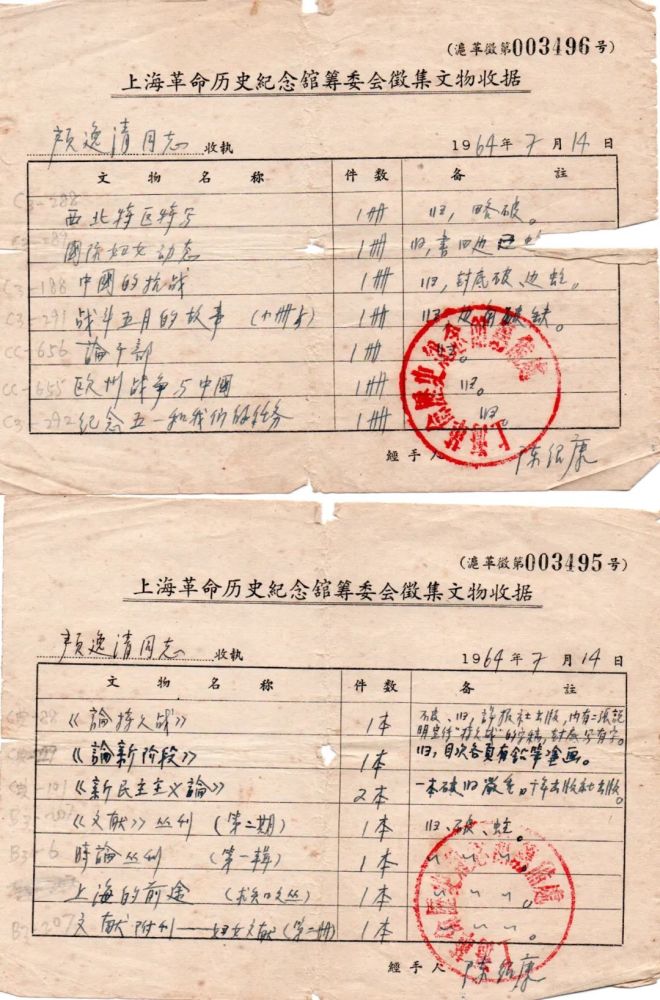 (滬革徵第003496号)
上海革命历史紀念舘籌委会徵集文物收据
颜逸清同志 收執 1964年7月14日
文物名称 件数 备註
C3-288 西北特区特写 1册 旧,略破。
國际妇女动态 1册 旧,書四边
C3-188 中國的抗战 1册 旧,封底破、边蛀。
C3-291 战斗五月的故事 1册 旧,
CC-656 論干部 1册 旧。
CC-655 欧州战争与中國 1册 旧。
C3-292 纪念五一和我们的任务 1册 旧。
經手人 陈绍康
上海革命歷史紀念舘籌備處
(滬革徵第003495号)
上海革命历史紀念舘籌委会徵集文物收据
颜逸清同志 收執 1964年7月14日
文物名称 件数 备註
《論持久战》 1本 破、旧,譯报社出版,内有二張說
明宣传"持久战"的字稿,封底写有字。
《論新阶段》 1本 旧,目次各頁有鉛筆塗画。
《新民主主义論》 2本 一本破旧
《文献》丛刊 (第二期) 1本 旧、破、蛀。
B3-6 時論丛刊 (第一輯) 1本 〃 〃 〃。
上海的前途 1本 〃 〃 〃。
文献附刊——妇女文献(第二册) 1本 〃 〃 〃。
經手人 陈绍康
上海革命歷史紀念舘籌備處